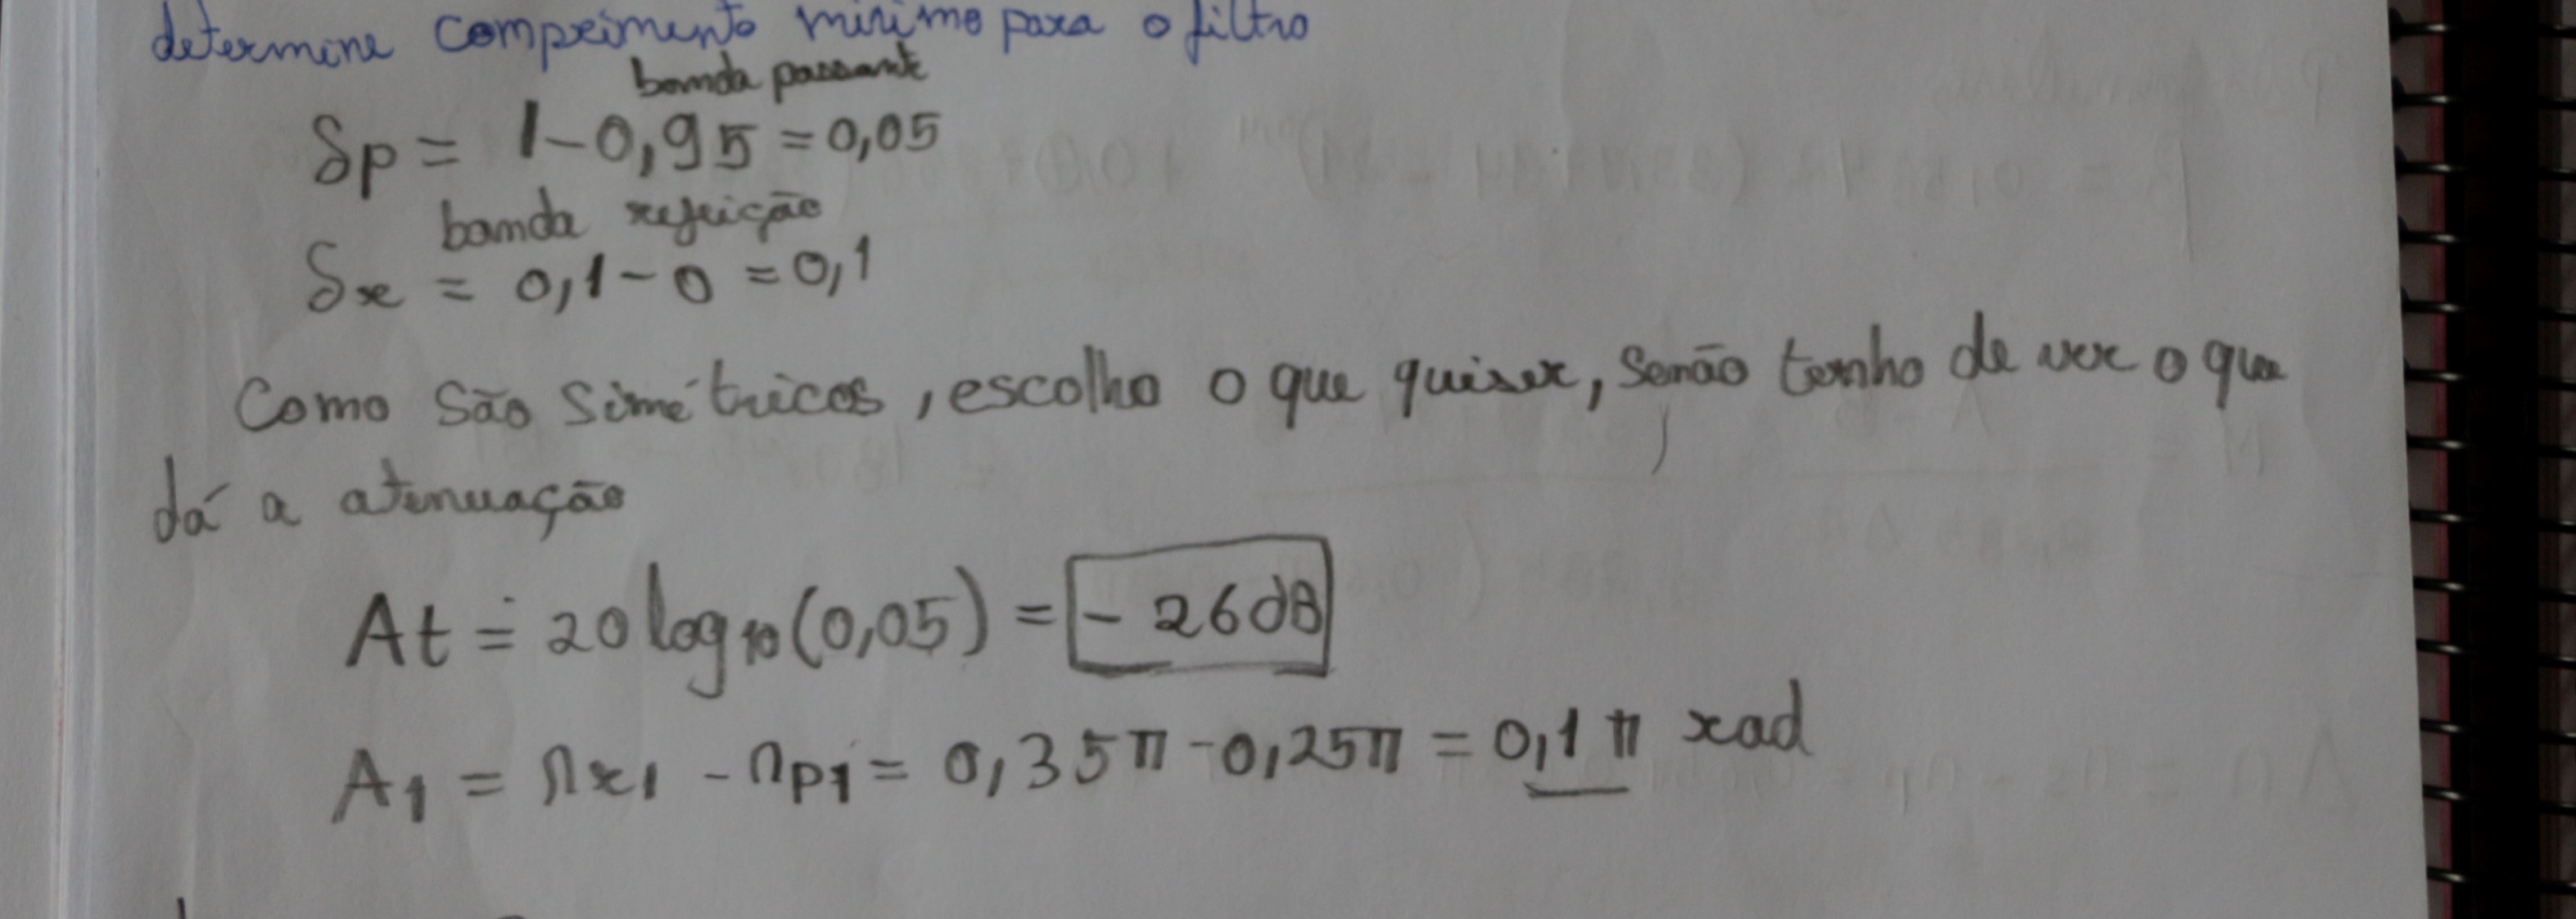 determine comprimento minimo para o filtro
banda passante
δp = 1-0,95 = 0,05
banda rejeição
δr = 0,1-0 = 0,1
Como são simétricos, escolho o que quiser, senão tenho de ver o que
dá a atenuação
At = 20 log10(0,05) = -26dB
A1 = Ωr1 - Ωp1 = 0,35π - 0,25π = 0,1π rad